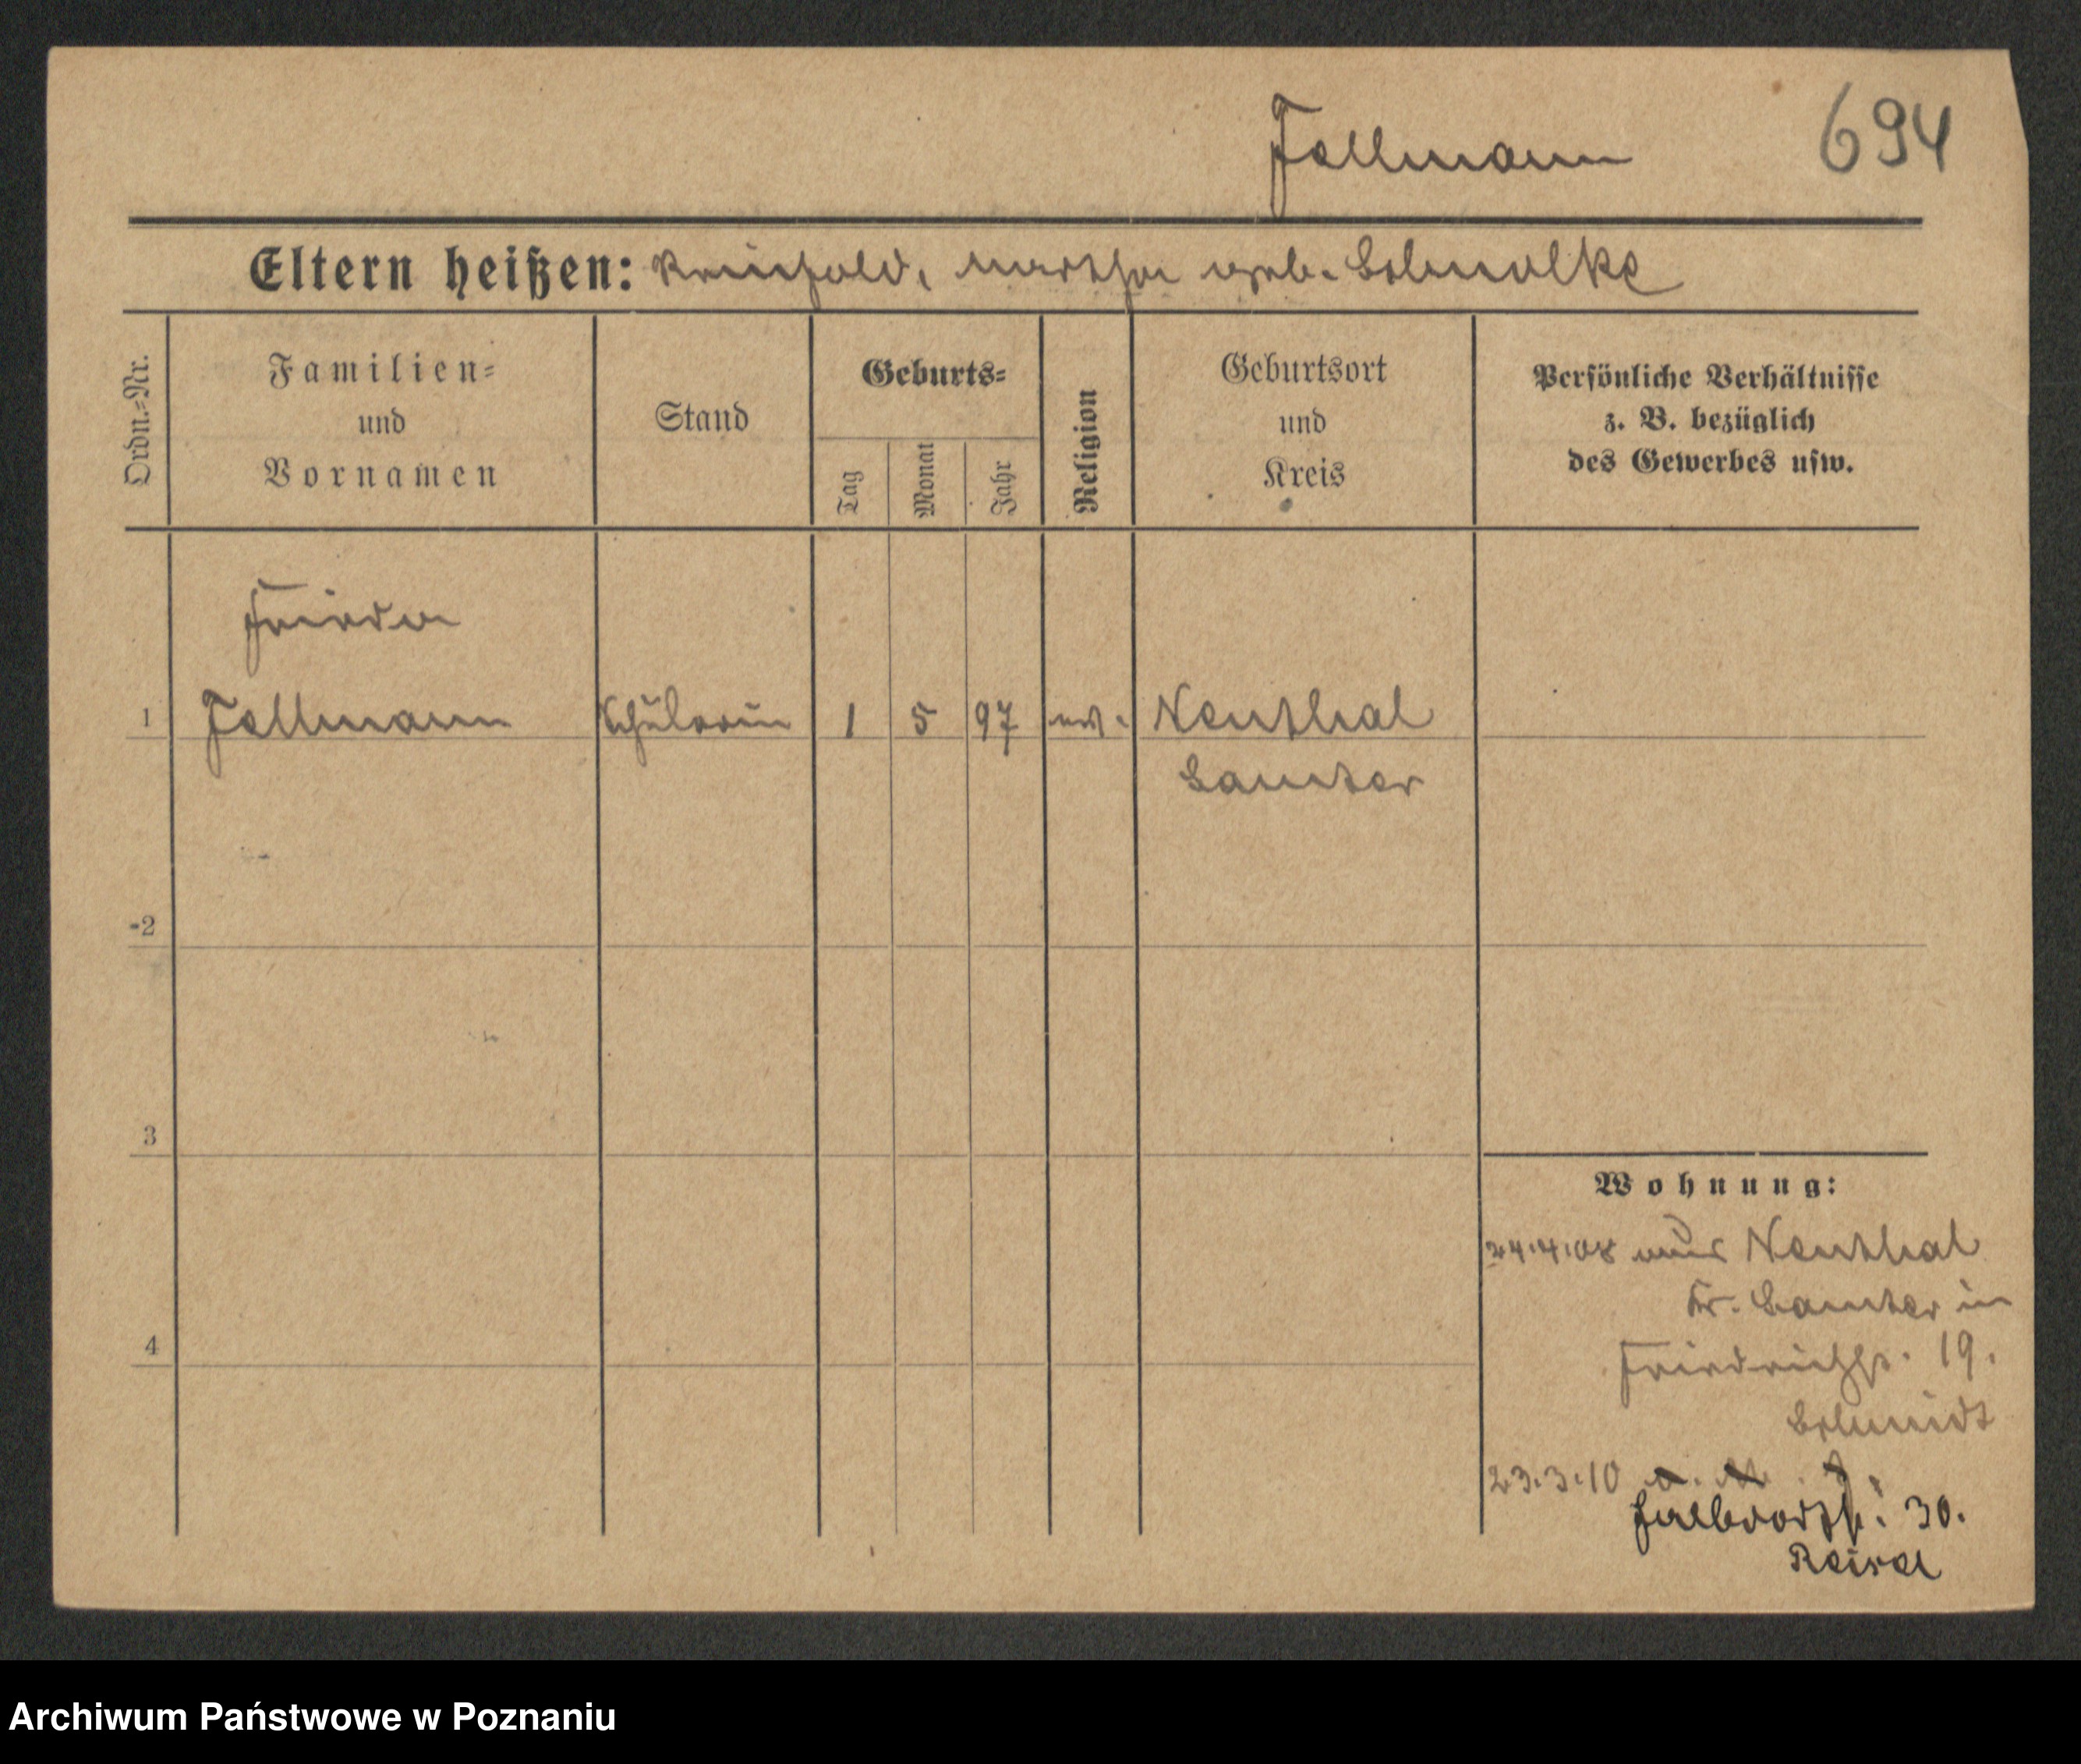 Fellmann
694
Eltern heißen: Reinhold, Martha geb. Schmolke
Ordn.=Nr.
Familien=
und
Vornamen
Stand
Geburts=
Tag
Monat
Jahr
Religion
Geburtsort
und
Kreis
Persönliche Verhältnisse
z. B. bezüglich
des Gewerbes usw.
Frieda
1 Fellmann Schülerin 1 5 97 ev. Neuthal
Samter
2
3
4
Wohnung:
24.4.08 aus Neuthal
Kr. Samter in
Friedrichstr. 19.
Schmidt
23.3.10
Halbdorfstr. 30.
Archiwum Państwowe w Poznaniu